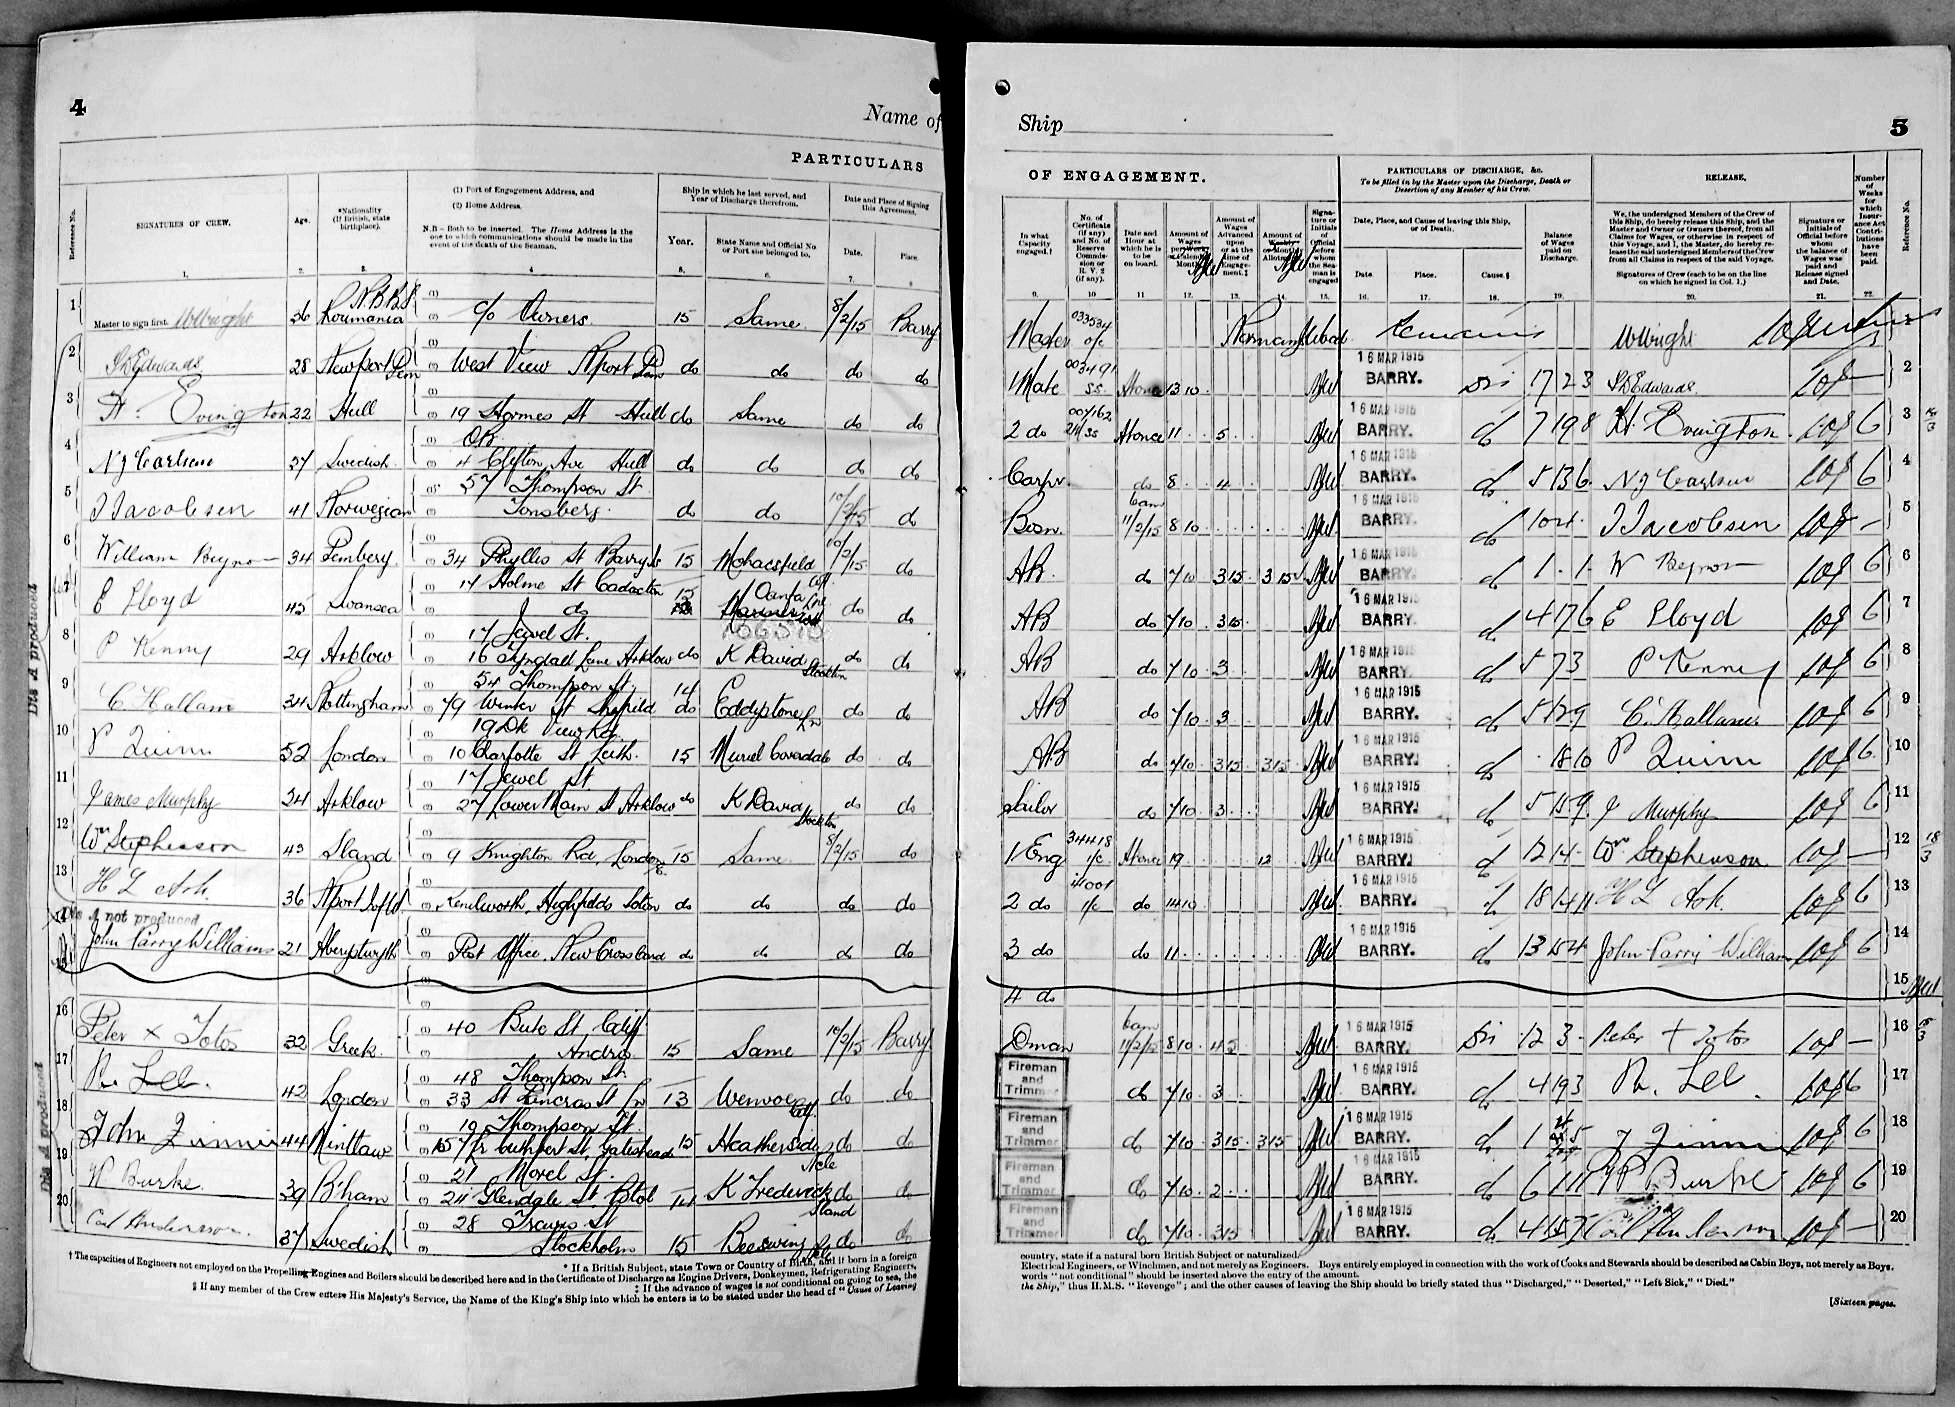 4
Name of
PARTICULARS
Reference No.
SIGNATURES OF CREW.
Age.
*Nationality (If British, state birthplace).
(1) Port of Engagement Address, and
(2) Home Address.
N.B.—Both to be inserted. The Home Address is the one to which communications should be made in the event of the death of the Seaman.
Ship in which he last served, and Year of Discharge therefrom.
Year.
State Name and Official No or Port she belonged to.
Date and Place of Signing this Agreement.
Date.
Place.
1. 2. 3. 4. 5. 6. 7. 8
1 Master to sign first. WWright 36 Roumania c/o Owners 15 Same 8/2/15 Barry
2 Edwards 28 Newport Pem West View Nport Pem do do do do
3 H. Evington 22 Hull 19 Hull do Same do do
4 N J Carlsen 37 Swedish 4 Clifton Ave Hull do do do do
5 57 Thompson St.
J Jacobsen 41 Norwegian Tonsberg do do 10/2/15 do
6 William Beynon 34 Pembery 34 Phyllis St Barry Is 15 Mohacsfield 10/2/15 do
7 14 Holme St Cadoxton
E Lloyd 45 Swansea do 15 do do
8 17 Jewel St.
P Kenny 29 Arklow 16 Tyndall Lane Arklow do K David Stockton do do
9 54 Thompson St. 14
C Hallam 34 Nottingham 79 Winter St Sheffield do Eddystone Ln do do
10 19 Dk View Rd.
P Quinn 52 London 10 Charlotte St Leith. 15 Muriel Coverdale do do
11 17 Jewel St.
James Murphy 34 Arklow 27 Lower Main St Arklow do K David Stockton do do
12 Wm Stephenson 43 Sland 9 Knighton Rd, London 15 Same 8/2/15 do
13 H L Ash 36 Nport Kenilworth, Highfields Soton do do do do
14 Dis A not produced
John Parry Williams 21 Aberystwyth Post Office New Cross Card do do do do
15
16 40 Bute St, Cdiff
Peter × Totos 32 Greek Andros 15 Same 10/2/15 Barry
17 48 Thompson St.
R. Lee. 42 London 33 St Pancras St Ln 13 Wenvoe Cdf. do do
18 19 Thompson St.
John 44 Mintlaw Cuthbert St, Gateshead 15 Heatherside do do
19 21 Morel St.
W Burke. 39 B'ham 24 Glendale St. Bstol 14 K Frederick Sland do do
20 28 Travis St
Carl Andersson. 37 Swedish Stockholm 15 Beeswing do do
Dis A produced
Dis A produced
† The capacities of Engineers not employed on the Propelling Engines and Boilers should be described here and in the Certificate of Discharge as Engine Drivers, Donkeymen, Refrigerating Engineers,
* If a British Subject, state Town or Country of Birth, and if born in a foreign
‡ If the advance of wages is not conditional on going to sea, the
§ If any member of the Crew enters His Majesty's Service, the Name of the King's Ship into which he enters is to be stated under the head of "Cause of Leaving
Ship
5
OF ENGAGEMENT.
In what Capacity engaged.†
No. of Certificate (if any) and No. of Reserve Commission or R. V. 2 (if any).
Date and Hour at which he is to be on board.
Amount of Wages per Week or Calendar Month.
Amount of Wages Advanced upon or at the time of Engagement.‡
Amount of Weekly or Monthly Allotment.
Signature or Initials of Official before whom the Seaman is engaged
PARTICULARS OF DISCHARGE, &c.
To be filled in by the Master upon the Discharge, Death or Desertion of any Member of his Crew.
Date, Place, and Cause of leaving this Ship, or of Death.
Date.
Place.
Cause.§
Balance of Wages paid on Discharge.
RELEASE,
We, the undersigned Members of the Crew of this Ship, do hereby release this Ship, and the Master and Owner or Owners thereof, from all Claims for Wages, or otherwise in respect of this Voyage, and I, the Master, do hereby release the said undersigned Members of the Crew from all Claims in respect of the said Voyage.
Signatures of Crew (each to be on the line on which he signed in Col. 1.)
Signature or Initials of Official before whom the balance of Wages was paid and Release signed and Date.
Number of Weeks for which Insurance Act Contributions have been paid.
Reference No.
9. 10 11 12. 13. 14. 15. 16. 17. 18. 19. 20. 21. 22.
Master 033534 o/c Remains WWright 1
1 Mate 003491 SS. At once 13 10 16 MAR 1915 BARRY. Dis 17 2 3 Edwards 2
2 do 007162 At once 11 5 16 MAR 1915 BARRY. do 7 19 8 H. Evington 6 3
Carpr. do 8 4 16 MAR 1915 BARRY. do 5 13 6 N J Carlsen 6 4
Bosn. 6am 11/2/15 8 10 16 MAR 1915 BARRY. do J Jacobsen — 5
AB. do 7 10 3 15 3 15 16 MAR 1915 BARRY. do 1 . 1 W Beynon 6 6
AB do 7 10 3 15 16 MAR 1915 BARRY. do 4 17 6 E Lloyd 6 7
AB do 7 10 3 16 MAR 1915 BARRY. do 5 7 3 P Kenny 6 8
AB do 7 10 3 16 MAR 1915 BARRY. do 5 12 9 C. Hallam 6 9
AB do 7 10 3 15 3 15 16 MAR 1915 BARRY. do 18 10 P Quinn 6 10
Sailor do 7 10 3 16 MAR 1915 BARRY. do 5 15 9 J Murphy 6 11
1 Eng 34418 1/c At once 19 12 16 MAR 1915 BARRY. do 12 14 Wm Stephenson — 12 18/3
2 do 1/c do 14 10 16 MAR 1915 BARRY. do 18 14 11 H L Ash. 6 13
3 do do 11 16 MAR 1915 BARRY. do 13 15 4 John Parry William 6 14
4 do 15
Dman 6am 11/2/15 8 10 4 5 16 MAR 1915 BARRY. Dis 12 3 Peter + Totos — 16
Fireman and Trimmer do 7 10 3 16 MAR 1915 BARRY. do 4 19 3 R. Lee 6 17
Fireman and Trimmer do 7 10 3 15 3 15 16 MAR 1915 BARRY. do 1 5 6 18
Fireman and Trimmer do 7 10 2 16 MAR 1915 BARRY. do 6 11 11 W Burke 6 19
Fireman and Trimmer do 7 10 3 15 16 MAR 1915 BARRY. do 4 15 7 Carl Andersson — 20
country, state if a natural born British Subject or naturalized.
Electrical Engineers, or Winchmen, and not merely as Engineers. Boys entirely employed in connection with the work of Cooks and Stewards should be described as Cabin Boys, not merely as Boys.
words "not conditional" should be inserted above the entry of the amount.
the Ship," thus H.M.S. "Revenge"; and the other causes of leaving the Ship should be briefly stated thus "Discharged," "Deserted," "Left Sick," "Died."
[Sixteen pages.